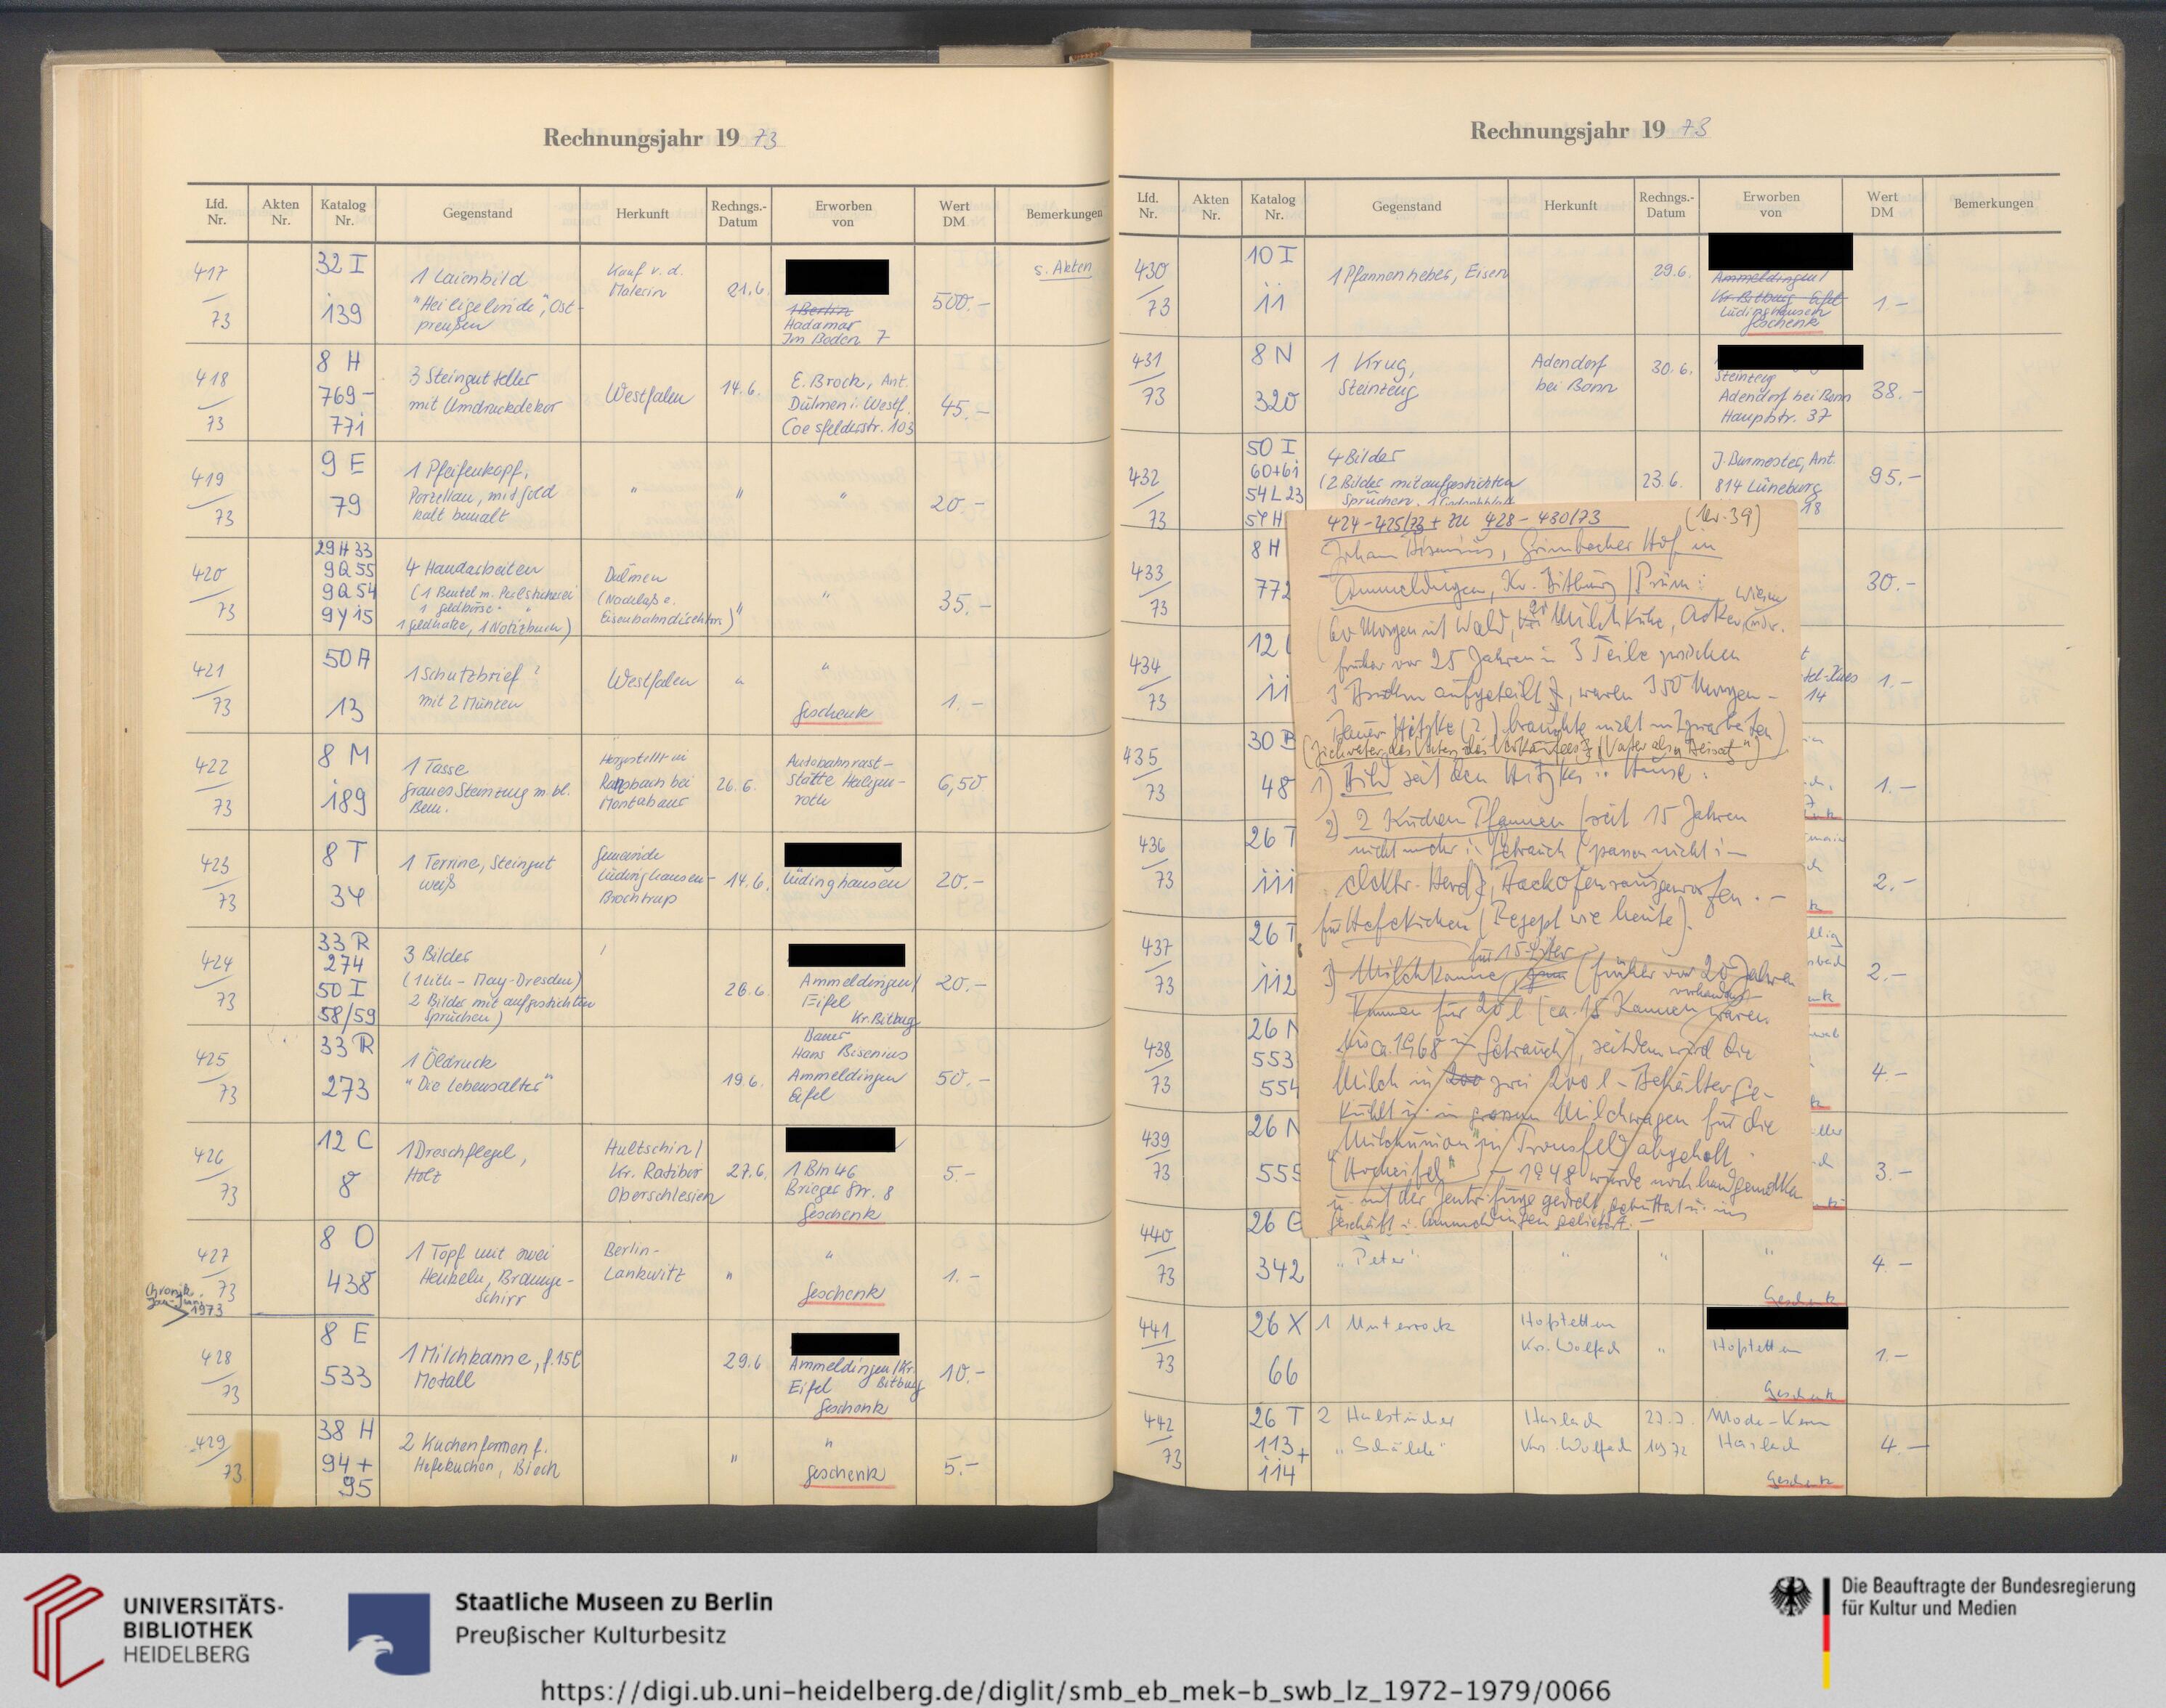 Rechnungsjahr 19 73
Lfd. Nr.
Akten Nr.
Katalog Nr.
Gegenstand
Herkunft
Rechngs.-Datum
Erworben von
Wert DM
Bemerkungen
417/73
32 I 139
1 Laienbild
"Heiligelinde", Ost-
preußen
Kauf v. d.
Malerin
21.6.
1 Berlin
Hadamar
Im Boden 7
500.-
s. Akten
418/73
8 H 769-771
3 Steingutteller
mit Umdruckdekor
Westfalen
14.6.
E. Brock, Ant.
Dülmen i. Westf.
Coesfelderstr. 103
45.-
419/73
9 E 79
1 Pfeifenkopf,
Porzellan, mit Gold
kalt bemalt
"
"
"
20.-
420/73
29 H 33
9 Q 55
9 Q 54
9 Y 15
4 Handarbeiten
(1 Beutel m. Perlstickerei
1 Geldbörse " "
1 Geldkatze, 1 Notizbuch)
Dülmen
(Nachlaß e.
Eisenbahndirektors)
"
"
35.-
421/73
50 A 13
1 Schutzbrief ?
mit 2 Münzen
Westfalen
"
"
Geschenk
1.-
422/73
8 M 189
1 Tasse
graues Steinzeug m. bl.
Bem.
Hergestellt in
Ransbach bei
Montabaur
26.6.
Autobahnrast-
stätte Heiligen-
roth
6,50
423/73
8 T 34
1 Terrine, Steingut
weiß
Gemeinde
Lüdinghausen-
Brochtrup
14.6.
Lüdinghausen
20.-
424/73
33 R 274
50 I 58/59
3 Bilder
(1 Lith - May-Dresden)
2 Bilder mit aufgestickten
Sprüchen)
26.6.
Ammeldingen/
Eifel
Kr. Bitburg
20.-
425/73
33 R 273
1 Öldruck
"Die Lebensalter"
19.6.
Bauer
Hans Bisenius
Ammeldingen
Eifel
50.-
426/73
12 C 8
1 Dreschflegel,
Holz
Hultschin/
Kr. Ratibor
Oberschlesien
27.6.
1 Bln 46
Brieger Str. 8
Geschenk
5.-
427/73
8 O 438
1 Topf mit zwei
Henkeln, Braunge-
schirr
Berlin-
Lankwitz
"
"
Geschenk
1.-
Chronik
Jan-Juni
1973
428/73
8 E 533
1 Milchkanne, f. 15 l
Metall
29.6
Ammeldingen/Kr.
Eifel Bitburg
Geschenk
10.-
429/73
38 H 94+95
2 Kuchenformen f.
Hefekuchen, Blech
"
"
Geschenk
5.-
Rechnungsjahr 19 73
Lfd. Nr.
Akten Nr.
Katalog Nr.
Gegenstand
Herkunft
Rechngs.-Datum
Erworben von
Wert DM
Bemerkungen
430/73
10 I 11
1 Pfannenheber, Eisen
29.6.
Ammeldingen/
Kr. Bitburg Eifel
Lüdinghausen
Geschenk
1.-
431/73
8 N 320
1 Krug,
Steinzeug
Adendorf
bei Bonn
30.6.
Steinzeug
Adendorf bei Bonn
Hauptstr. 37
38.-
432/73
50 I 60+61
54 L 23
4 Bilder
(2 Bilder mit aufgestickten
Sprüchen,
23.6.
J. Burmester, Ant.
814 Lüneburg
18
95.-
433/73
8 H 772
30.-
434/73
11
14
1.-
435/73
48
1.-
436/73
26 T 111
2.-
437/73
26 T 112
2.-
438/73
553
554
4.-
439/73
555
3.-
440/73
342
"Peter"
"
"
"
Geschenk
4.-
441/73
26 X 66
1 Unterrock
Hofstetten
Kr. Wolfach
"
Hofstetten
Geschenk
1.-
442/73
26 T 113+114
2 Halstücher
Haslach
Kr. Wolfach
1972
Haslach
Geschenk
4.-
424-425/73 + zu 428-430/73
Grimbacher Hof in
Ammeldingen, Kr. Bitburg/Prüm:
früher vor 25 Jahren in 3 Teile zwischen
3 Brüdern aufgeteilt, waren 350 Morgen -
2) 2 Kuchen Pfannen (seit 15 Jahren
nicht mehr in Gebrauch (passen nicht i-
elektr. Herd), Backofen rausgeworfen.-
für Hefekuchen (Rezept wie heute).
für 15 Liter
3) Milchkanne (früher vor 20 Jahren
vorhanden
Kannen für 20 l (ca. 15 Kannen waren
bis ca. 1968 in Gebrauch), seitdem wird die
Milch in zwei 200 l - Behälter ge-
kühlt u. in grossen Milchwagen für die
"Milchunion in Pronsfeld abgeholt.
"Hocheifel" - 1948 wurde noch handgemolken
u. mit der Zentrifuge gedreht, gebuttert u. ins
Geschäft i. Ammeldingen geliefert.-
UNIVERSITÄTS-
BIBLIOTHEK
HEIDELBERG
Staatliche Museen zu Berlin
Preußischer Kulturbesitz
Die Beauftragte der Bundesregierung
für Kultur und Medien
https://digi.ub.uni-heidelberg.de/diglit/smb_eb_mek-b_swb_lz_1972-1979/0066